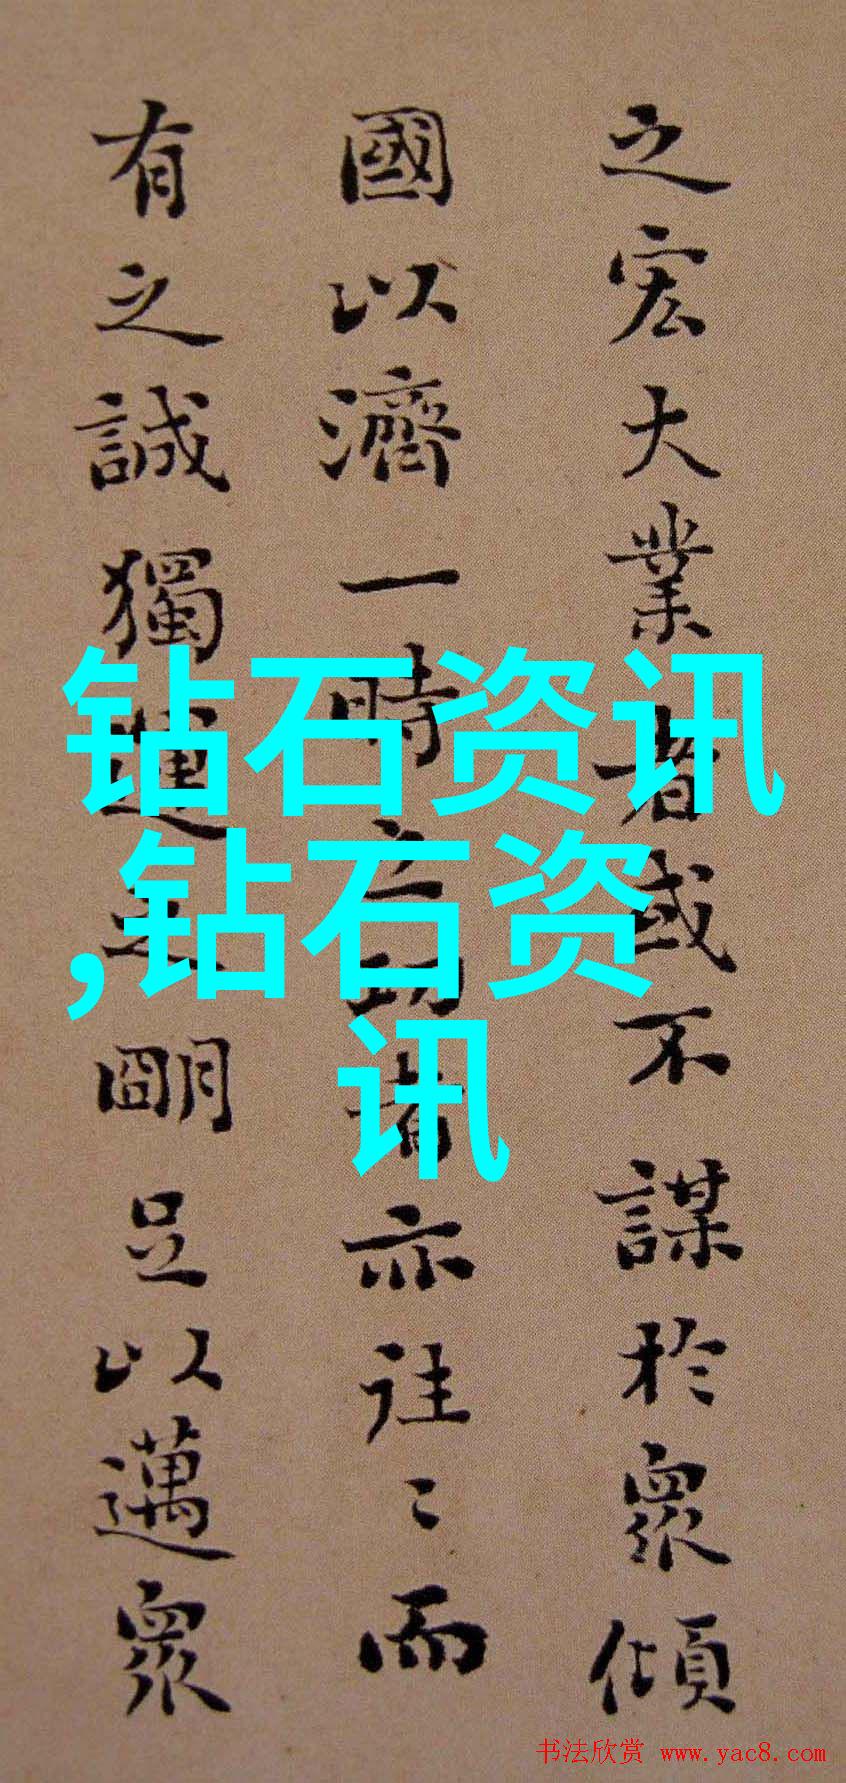 之宏大業者或不謀於衆傾
國以濟一時之功者亦往〻而
有之誠獨運之明足以邁衆
钻石资讯
,钻石资
讯
书法欣赏 www.yac8.com